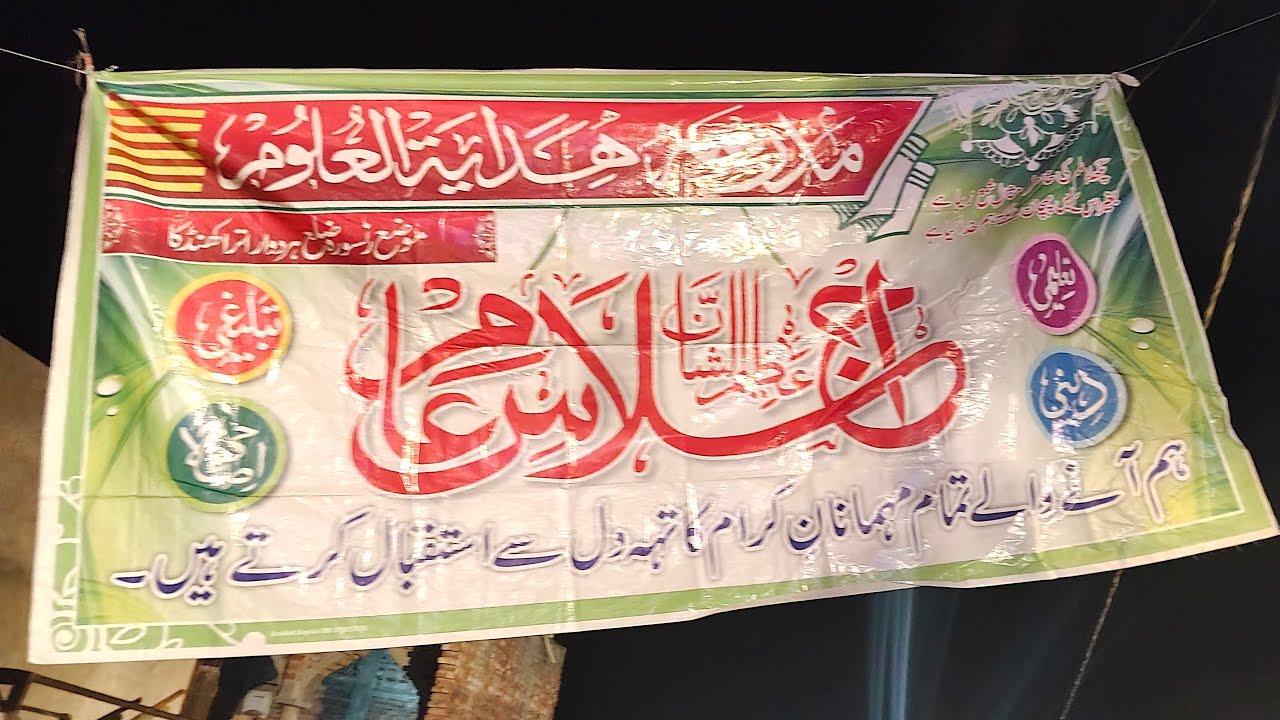 مدرسہ ھدایۃ العلوم
موضع رسورہ ضلع ہردوار اتراکھنڈ کا
عظیم الشان
اجلاس عام
تعلیمی
دینی
تبلیغی
اصلاحی
ہم آنے والے تمام مہمانان کرام کا تہہ دل سے استقبال کرتے ہیں۔